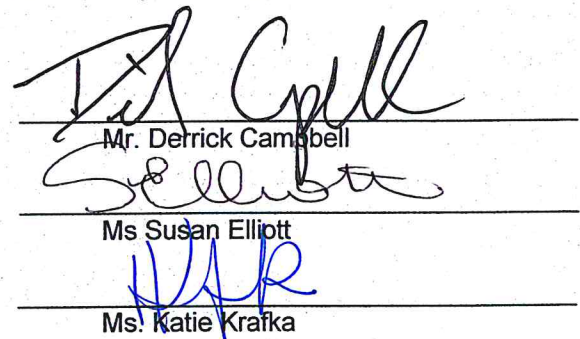 Mr. Derrick Campbell
S Elliott
Ms Susan Elliott
Ms. Katie Krafka